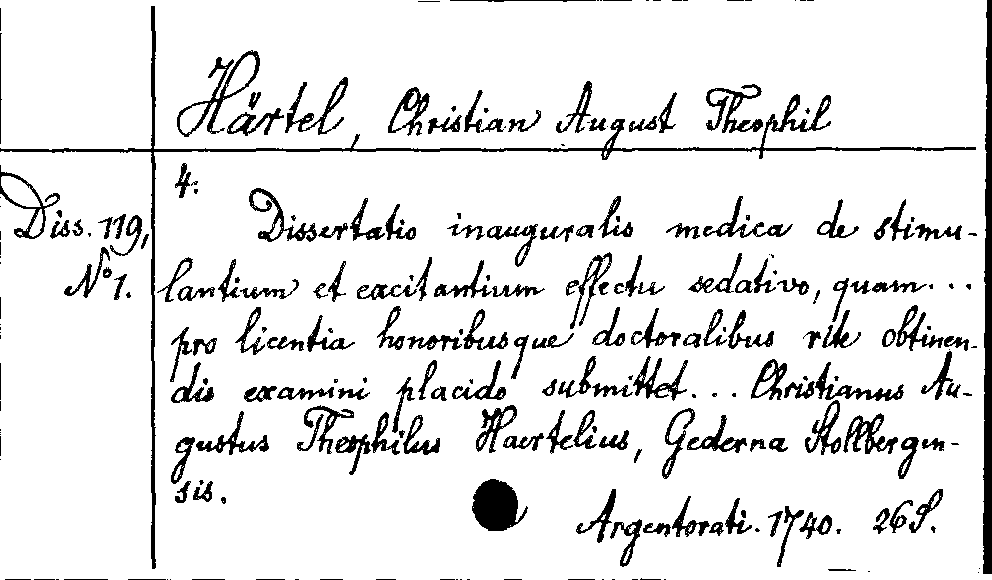 Härtel, Christian August Theophil
4.
Diss. 119,
No 1.
Dissertatio inauguralis medica de stimu-
lantium et excitantium effectu sedativo, quam...
pro licentia honoribusque doctoralibus rite obtinen-
dis examini placido submittet... Christianus Au-
gustus Theophilus Haertelius, Gederna Stollbergen-
sis.
Argentorati. 1740. 26 S.